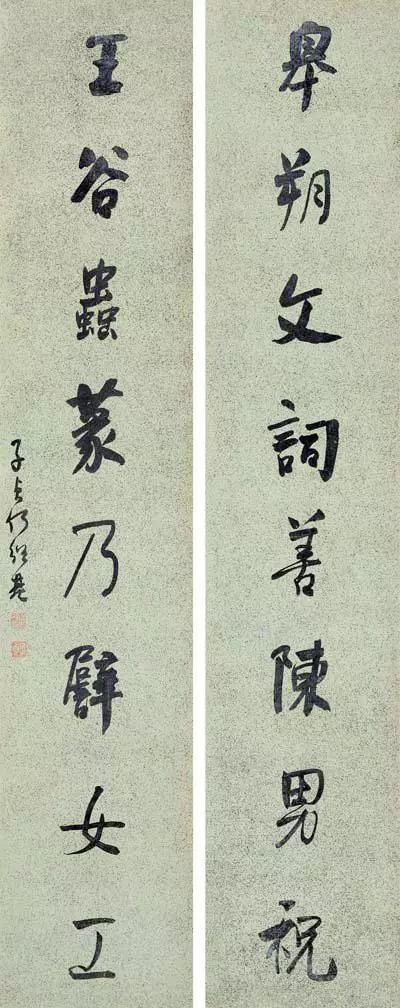 皋朔文詞善陳男祝
王谷蟲篆乃女工
子貞何紹基